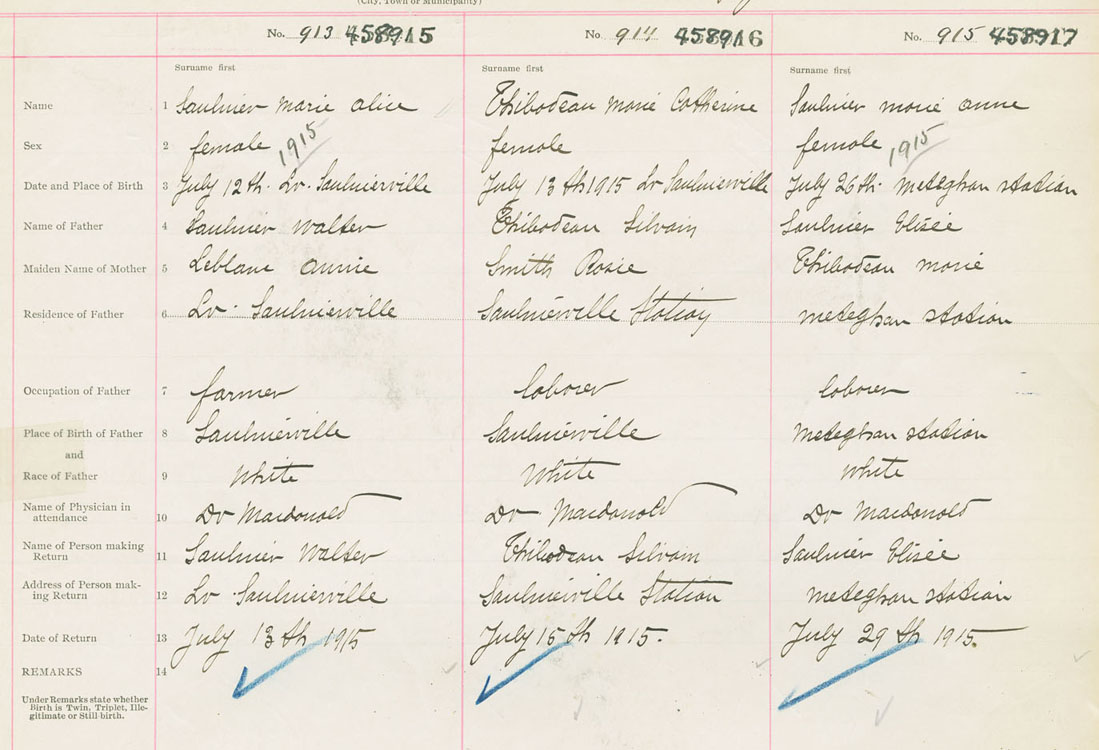 (City, Town or Municipality)
No. 913 458915 No. 914 458916 No. 915 458917
Surname first Surname first Surname first
Name 1 Saulnier marie alice Thibodeau marie Catherine Saulnier marie anne
Sex 2 female 1915 female female 1915
Date and Place of Birth 3 July 12th. Lr. Saulnierville July 13th 1915 Lr Saulnierville July 26th. meteghan station
Name of Father 4 Saulnier Walter Thibodeau Silvain Saulnier Elisée
Maiden Name of Mother 5 Leblanc annie Smith Rosie Thibodeau marie
Residence of Father 6 Lr. Saulnierville Saulnierville Station meteghan station
Occupation of Father 7 farmer laborer laborer
Place of Birth of Father 8 Saulnierville Saulnierville meteghan station
and
Race of Father 9 White White White
Name of Physician in
attendance 10 Dr Macdonald Dr Macdonald Dr Macdonald
Name of Person making
Return 11 Saulnier Walter Thibodeau Silvain Saulnier Elisée
Address of Person mak-
ing Return 12 Lr Saulnierville Saulnierville Station meteghan station
Date of Return 13 July 13th 1915 July 15th 1915. July 29th 1915.
REMARKS 14
Under Remarks state whether
Birth is Twin, Triplet, Ille-
gitimate or Still-birth.